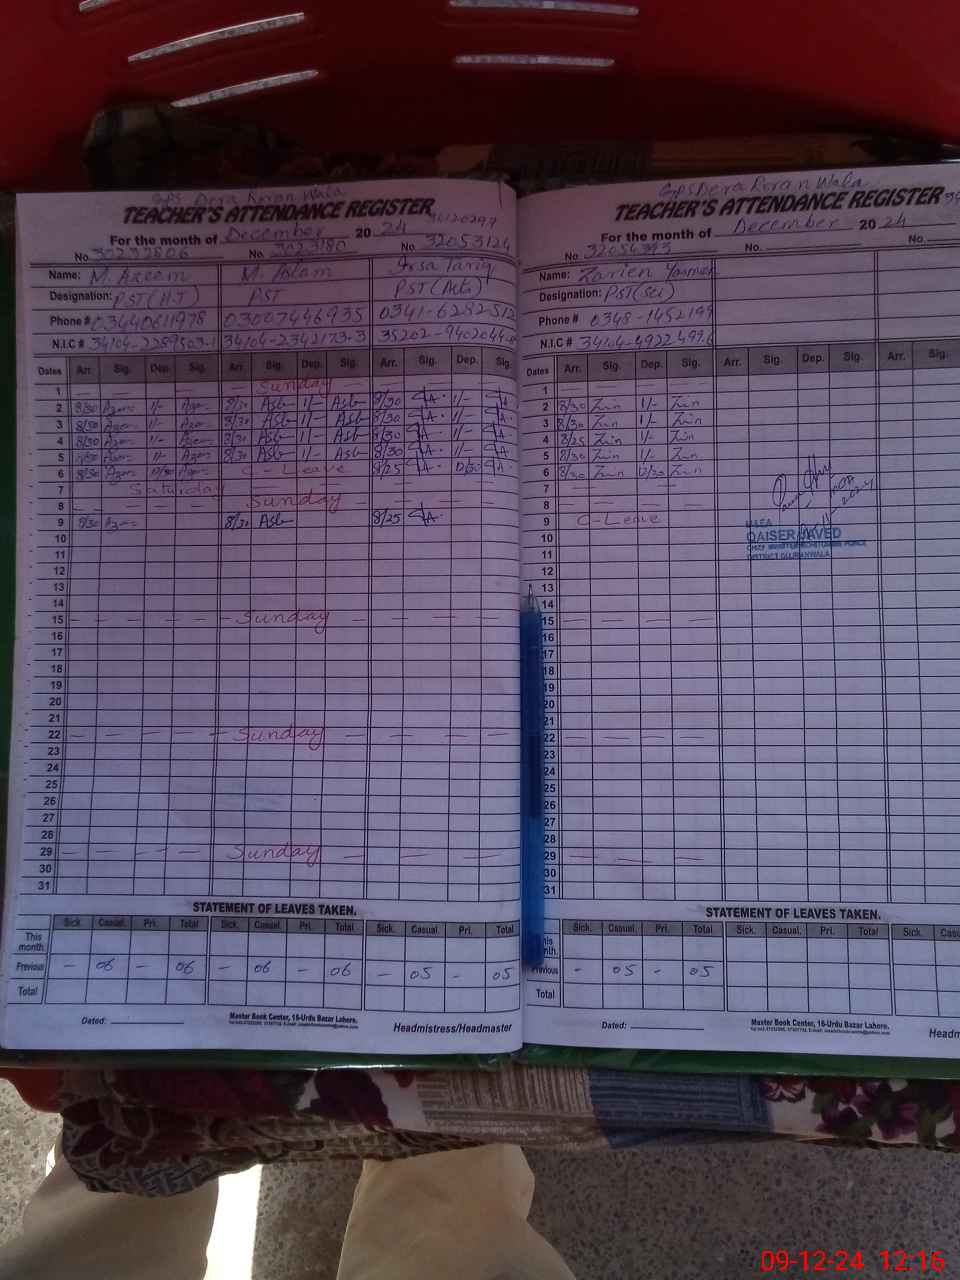 GPS Dera Roran Wala
TEACHER'S ATTENDANCE REGISTER
For the month of December 2024
No. 30232806 No. 3023180 No. 32053124
Name: M. Azeem M. Aslam Irsa Tariq
Designation: PST (H.T) PST PST (Arts)
Phone # 03440611978 03007446935 0341-6282512
N.I.C # 34104-2289503-1 34104-2342173-3 35202-9402044-
Dates Arr. Sig. Dep. Sig. Arr. Sig. Dep. Sig. Arr. Sig. Dep. Sig.
1 Sunday
2 8/30 1/- 8/30 Asb 1/- Asb 8/30 1/-
3 8/30 1/- 8/30 Asb 1/- Asb 8/30 1/-
4 8/30 1/- 8/30 Asb 1/- Asb 8/30 1/-
5 8/30 1/- 8/30 Asb 1/- Asb 8/30 1/-
6 8/30 12/30 C-Leave 8/25 12/30
7 Saturday
8 Sunday
9 8/30 8/30 Asb 8/25
10
11
12
13
14
15 Sunday
16
17
18
19
20
21
22 Sunday
23
24
25
26
27
28
29 Sunday
30
31
STATEMENT OF LEAVES TAKEN.
Sick. Casual. Pri. Total Sick. Casual. Pri. Total Sick. Casual. Pri. Total
This month
Previous - 06 - 06 - 06 - 06 - 05 - 05
Total
Master Book Center, 16-Urdu Bazar Lahore.
Dated: Headmistress/Headmaster
GPS Dera Roran Wala
TEACHER'S ATTENDANCE REGISTER
For the month of December 2024
No. 32054393 No. No.
Name: Zarien Yasmeen
Designation: PST (Sci)
Phone # 0348-1452199
N.I.C # 34104-4922499-6
Dates Arr. Sig. Dep. Sig. Arr. Sig. Dep. Sig. Arr. Sig.
1
2 8/30 Zrin 1/- Zrin
3 8/30 Zrin 1/- Zrin
4 8/25 Zrin 1/- Zrin
5 8/30 Zrin 1/- Zrin
6 8/30 Zrin 12/30 Zrin
7
8
9 C-Leave
M.E.A
QAISER JAVED
CHIEF MINISTER MONITORING FORCE
DISTRICT GUJRANWALA
10
11
12
13
14
15
16
17
18
19
20
21
22
23
24
25
26
27
28
29
30
31
STATEMENT OF LEAVES TAKEN.
Sick. Casual. Pri. Total Sick. Casual. Pri. Total Sick.
Previous - 05 - 05
Total
Master Book Center, 16-Urdu Bazar Lahore.
Dated:
09-12-24 12:16